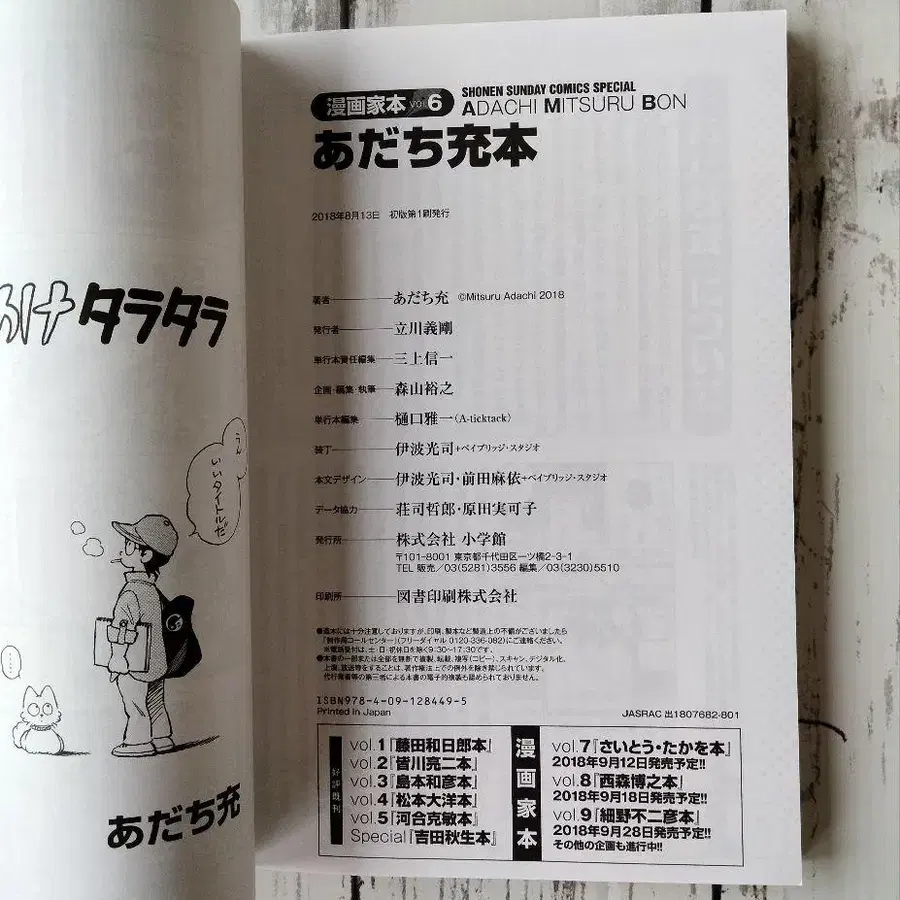 タラタラ
うん
いいタイトルだ
あだち充
漫画家本 vol.6
SHONEN SUNDAY COMICS SPECIAL
ADACHI MITSURU BON
あだち充本
2018年8月13日 初版第1刷発行
著者 あだち充 ©Mitsuru Adachi 2018
発行者 立川義剛
単行本責任編集 三上信一
企画・編集・執筆 森山裕之
単行本編集 樋口雅一(A-ticktack)
装丁 伊波光司+ベイブリッジ・スタジオ
本文デザイン 伊波光司・前田麻依+ベイブリッジ・スタジオ
データ協力 荘司哲郎・原田実可子
発行所 株式会社 小学館
〒101-8001 東京都千代田区一ツ橋2-3-1
TEL 販売/03(5281)3556 編集/03(3230)5510
印刷所 図書印刷株式会社
●造本には十分注意しておりますが、印刷、製本など製造上の不備がございましたら
「制作局コールセンター」(フリーダイヤル0120-336-082)にご連絡ください。
※電話受付は、土・日・祝休日を除く9:30~17:30です。
●本書の一部または全部を無断で複製、転載、複写(コピー)、スキャン、デジタル化、
上演、放送等をすることは、著作権法上での例外を除き禁じられています。
代行業者等の第三者による本書の電子的複製も認められておりません。
ISBN978-4-09-128449-5
Printed in Japan
JASRAC 出1807682-801
好評既刊
vol.1『藤田和日郎本』
vol.2『皆川亮二本』
vol.3『島本和彦本』
vol.4『松本大洋本』
vol.5『河合克敏本』
Special『吉田秋生本』
漫画家本
vol.7『さいとう・たかを本』
2018年9月12日発売予定!!
vol.8『西森博之本』
2018年9月18日発売予定!!
vol.9『細野不二彦本』
2018年9月28日発売予定!!
その他の企画も進行中!!